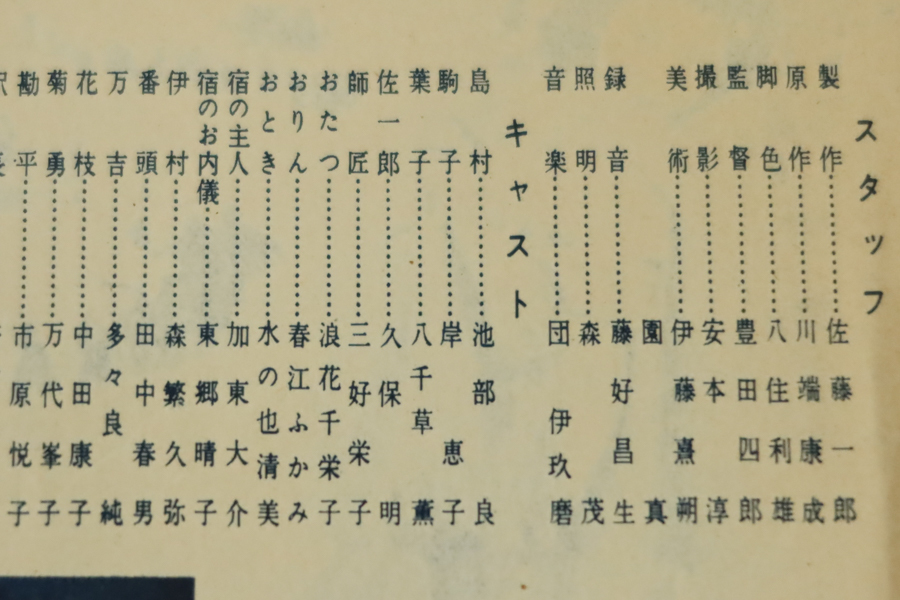 スタッフ
製作…………佐藤一郎
原作…………川端康成
脚色…………八住利雄
監督…………豊田四郎
撮影…………安本淳
美術…………伊藤熹朔
園真
録音…………藤好昌生
照明…………森茂
音楽…………団伊玖磨
キャスト
島村…………池部良
駒子…………岸恵子
葉子…………八千草薫
佐一郎…………久保明
師匠…………三好栄子
おたつ…………浪花千栄子
おりん…………春江ふかみ
おとき…………水の也清美
宿の主人…………加東大介
宿のお内儀…………東郷晴子
伊村…………森繁久弥
番頭…………田中春男
万吉…………多々良純
花枝…………中田康子
菊勇…………万代峯子
勘平…………市原悦子